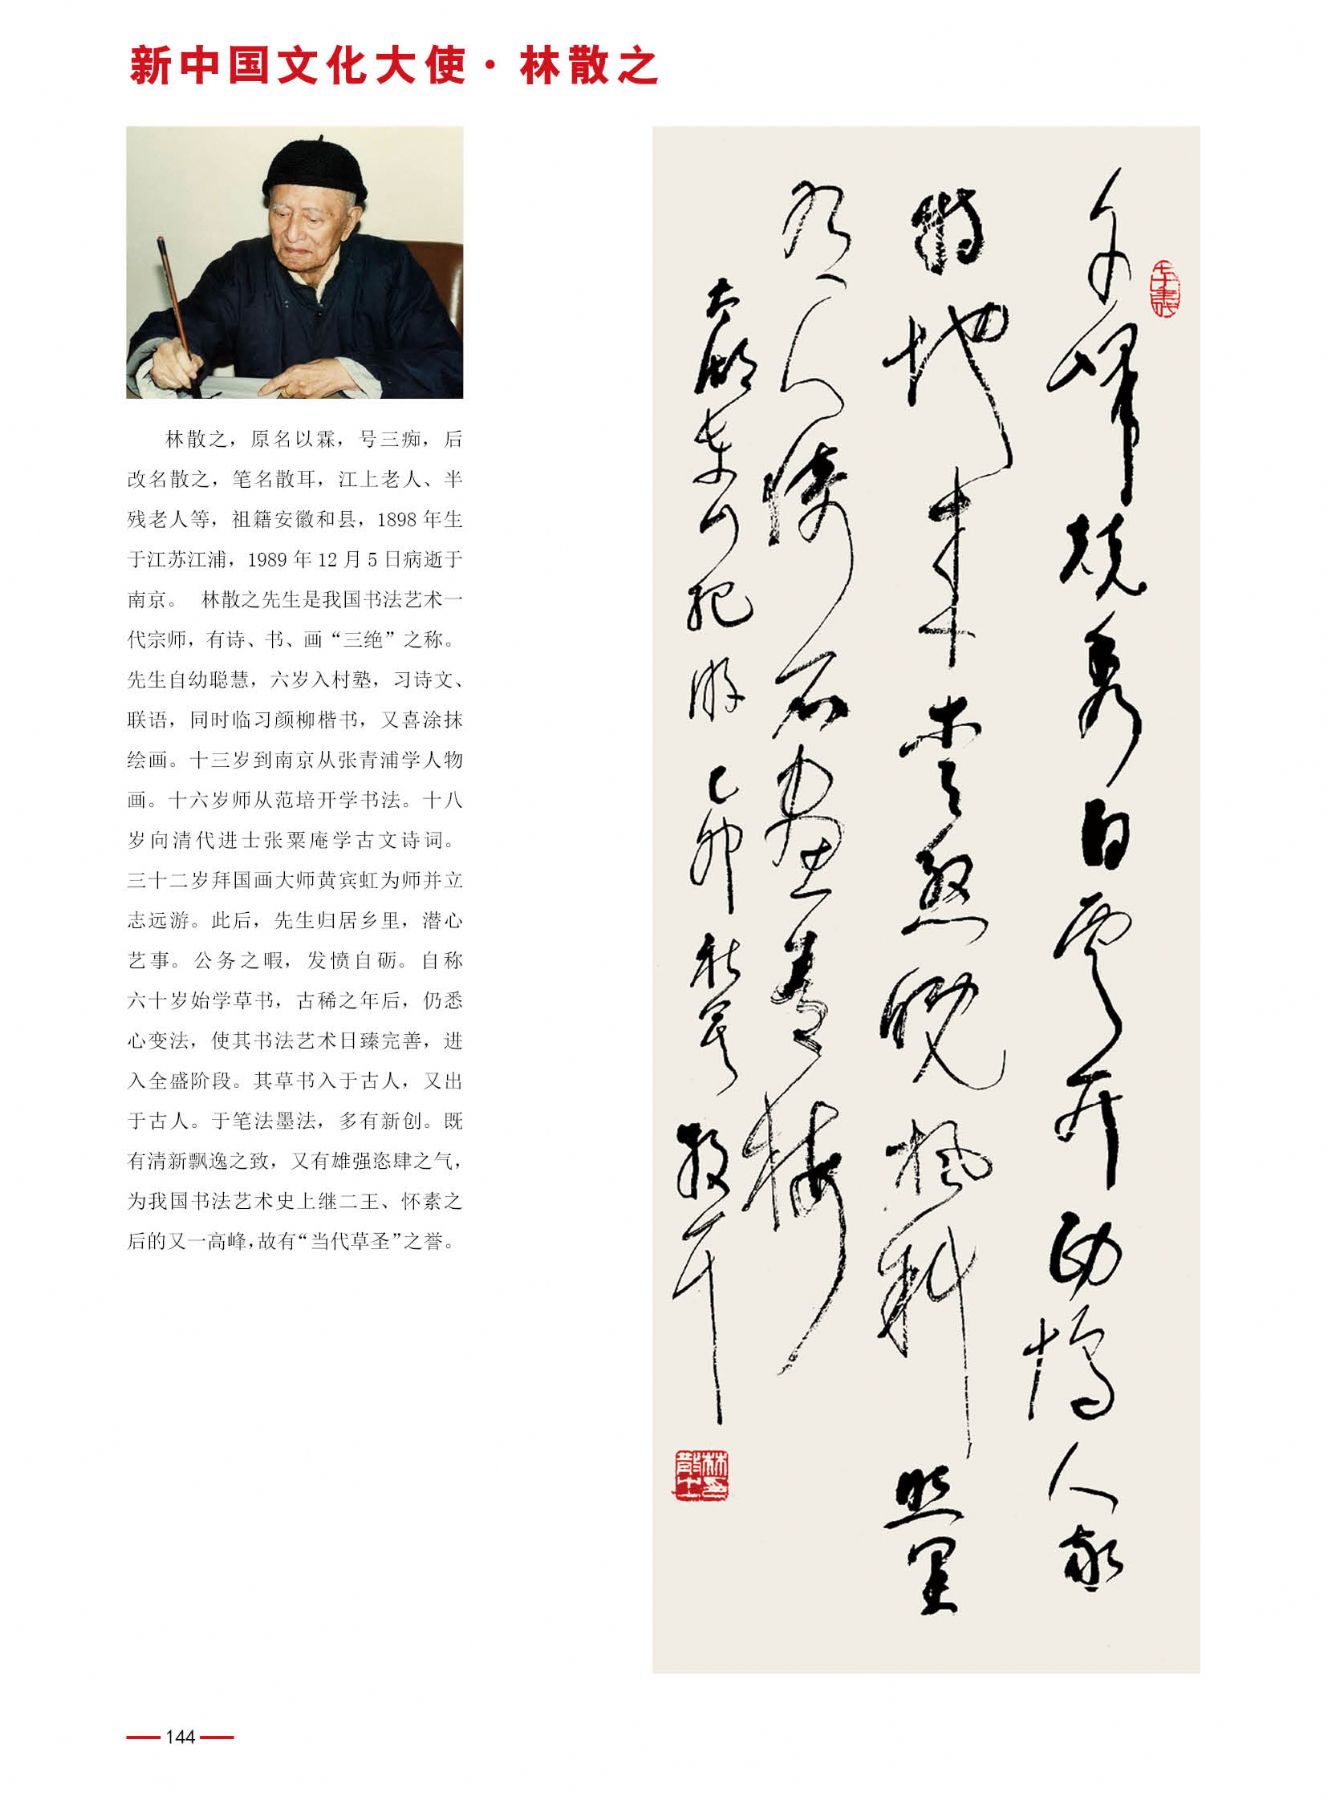 新中国文化大使·林散之
林散之，原名以霖，号三痴，后
改名散之，笔名散耳，江上老人、半
残老人等，祖籍安徽和县，1898 年生
于江苏江浦，1989 年 12 月 5 日病逝于
南京。 林散之先生是我国书法艺术一
代宗师，有诗、书、画“三绝”之称。
先生自幼聪慧，六岁入村塾，习诗文、
联语，同时临习颜柳楷书，又喜涂抹
绘画。十三岁到南京从张青浦学人物
画。十六岁师从范培开学书法。十八
岁向清代进士张栗庵学古文诗词。
三十二岁拜国画大师黄宾虹为师并立
志远游。此后，先生归居乡里，潜心
艺事。公务之暇，发愤自砺。自称
六十岁始学草书，古稀之年后，仍悉
心变法，使其书法艺术日臻完善，进
入全盛阶段。其草书入于古人，又出
于古人。于笔法墨法，多有新创。既
有清新飘逸之致，又有雄强恣肆之气，
为我国书法艺术史上继二王、怀素之
后的又一高峰，故有“当代草圣”之誉。
峰競秀白雲開 塢人家
特地来 晚楓斜照里
有人倚石画
太湖东山纪游 乙卯 散耳
144